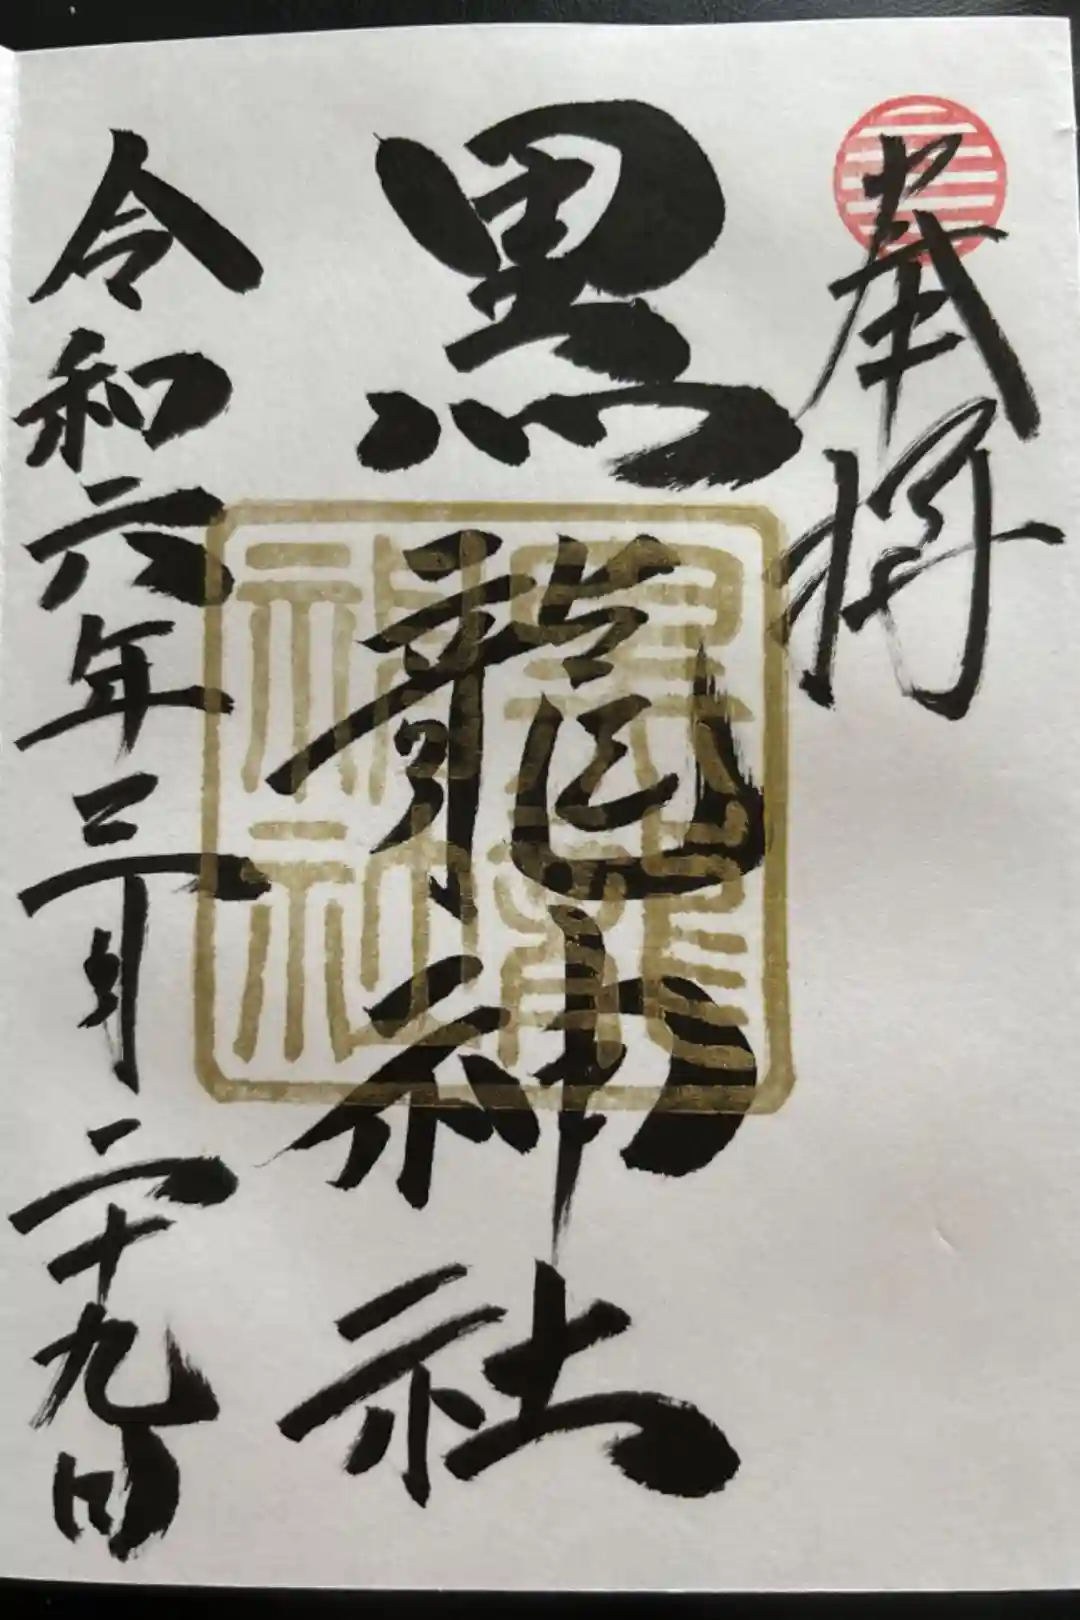 奉拝
黒龍神社
黒龍
神社
令和六年三月二十九日